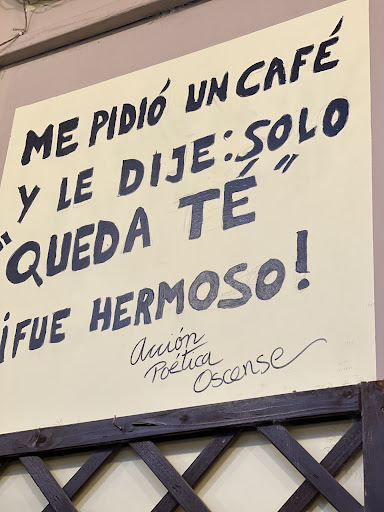 ME PIDIÓ UN CAFÉ
Y LE DIJE: SOLO
"QUEDA TÉ"
¡FUE HERMOSO!
Acción
Poética
Oscense